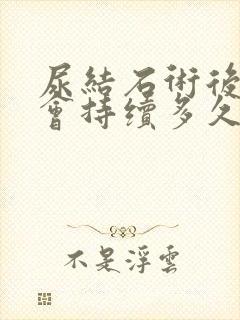 尿結石術後
會持續多久
不是浮雲